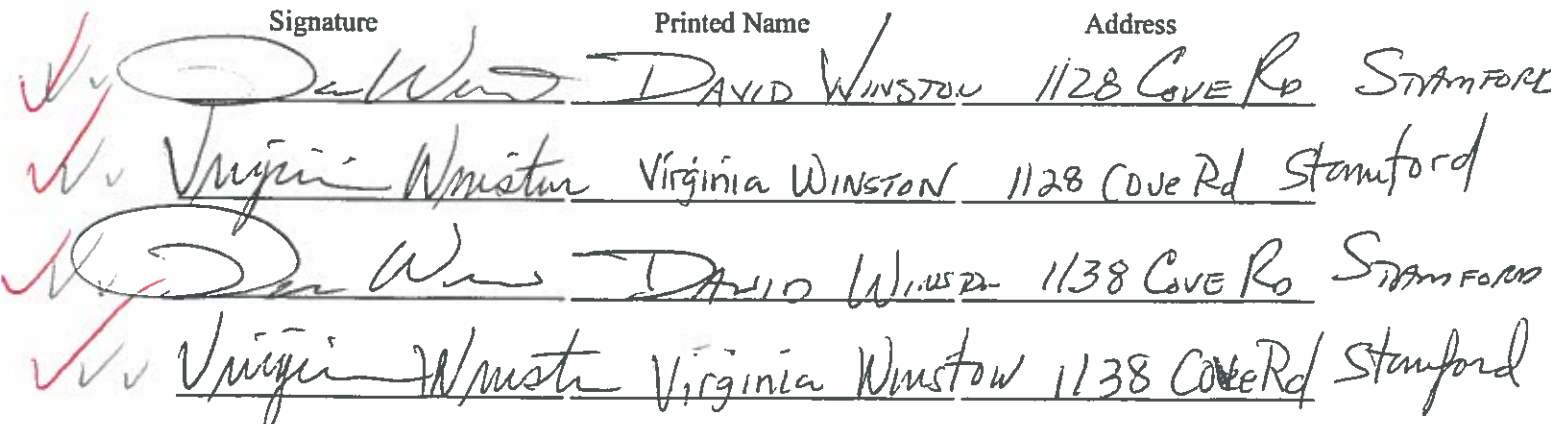 Signature Printed Name Address
David Winston DAVID WINSTON 1128 COVE RD STAMFORD
Virginia Winston Virginia WINSTON 1128 Cove Rd Stamford
David Winston DAVID WINSTON 1138 COVE RD STAMFORD
Virginia Winston Virginia Winston 1138 Cove Rd Stamford